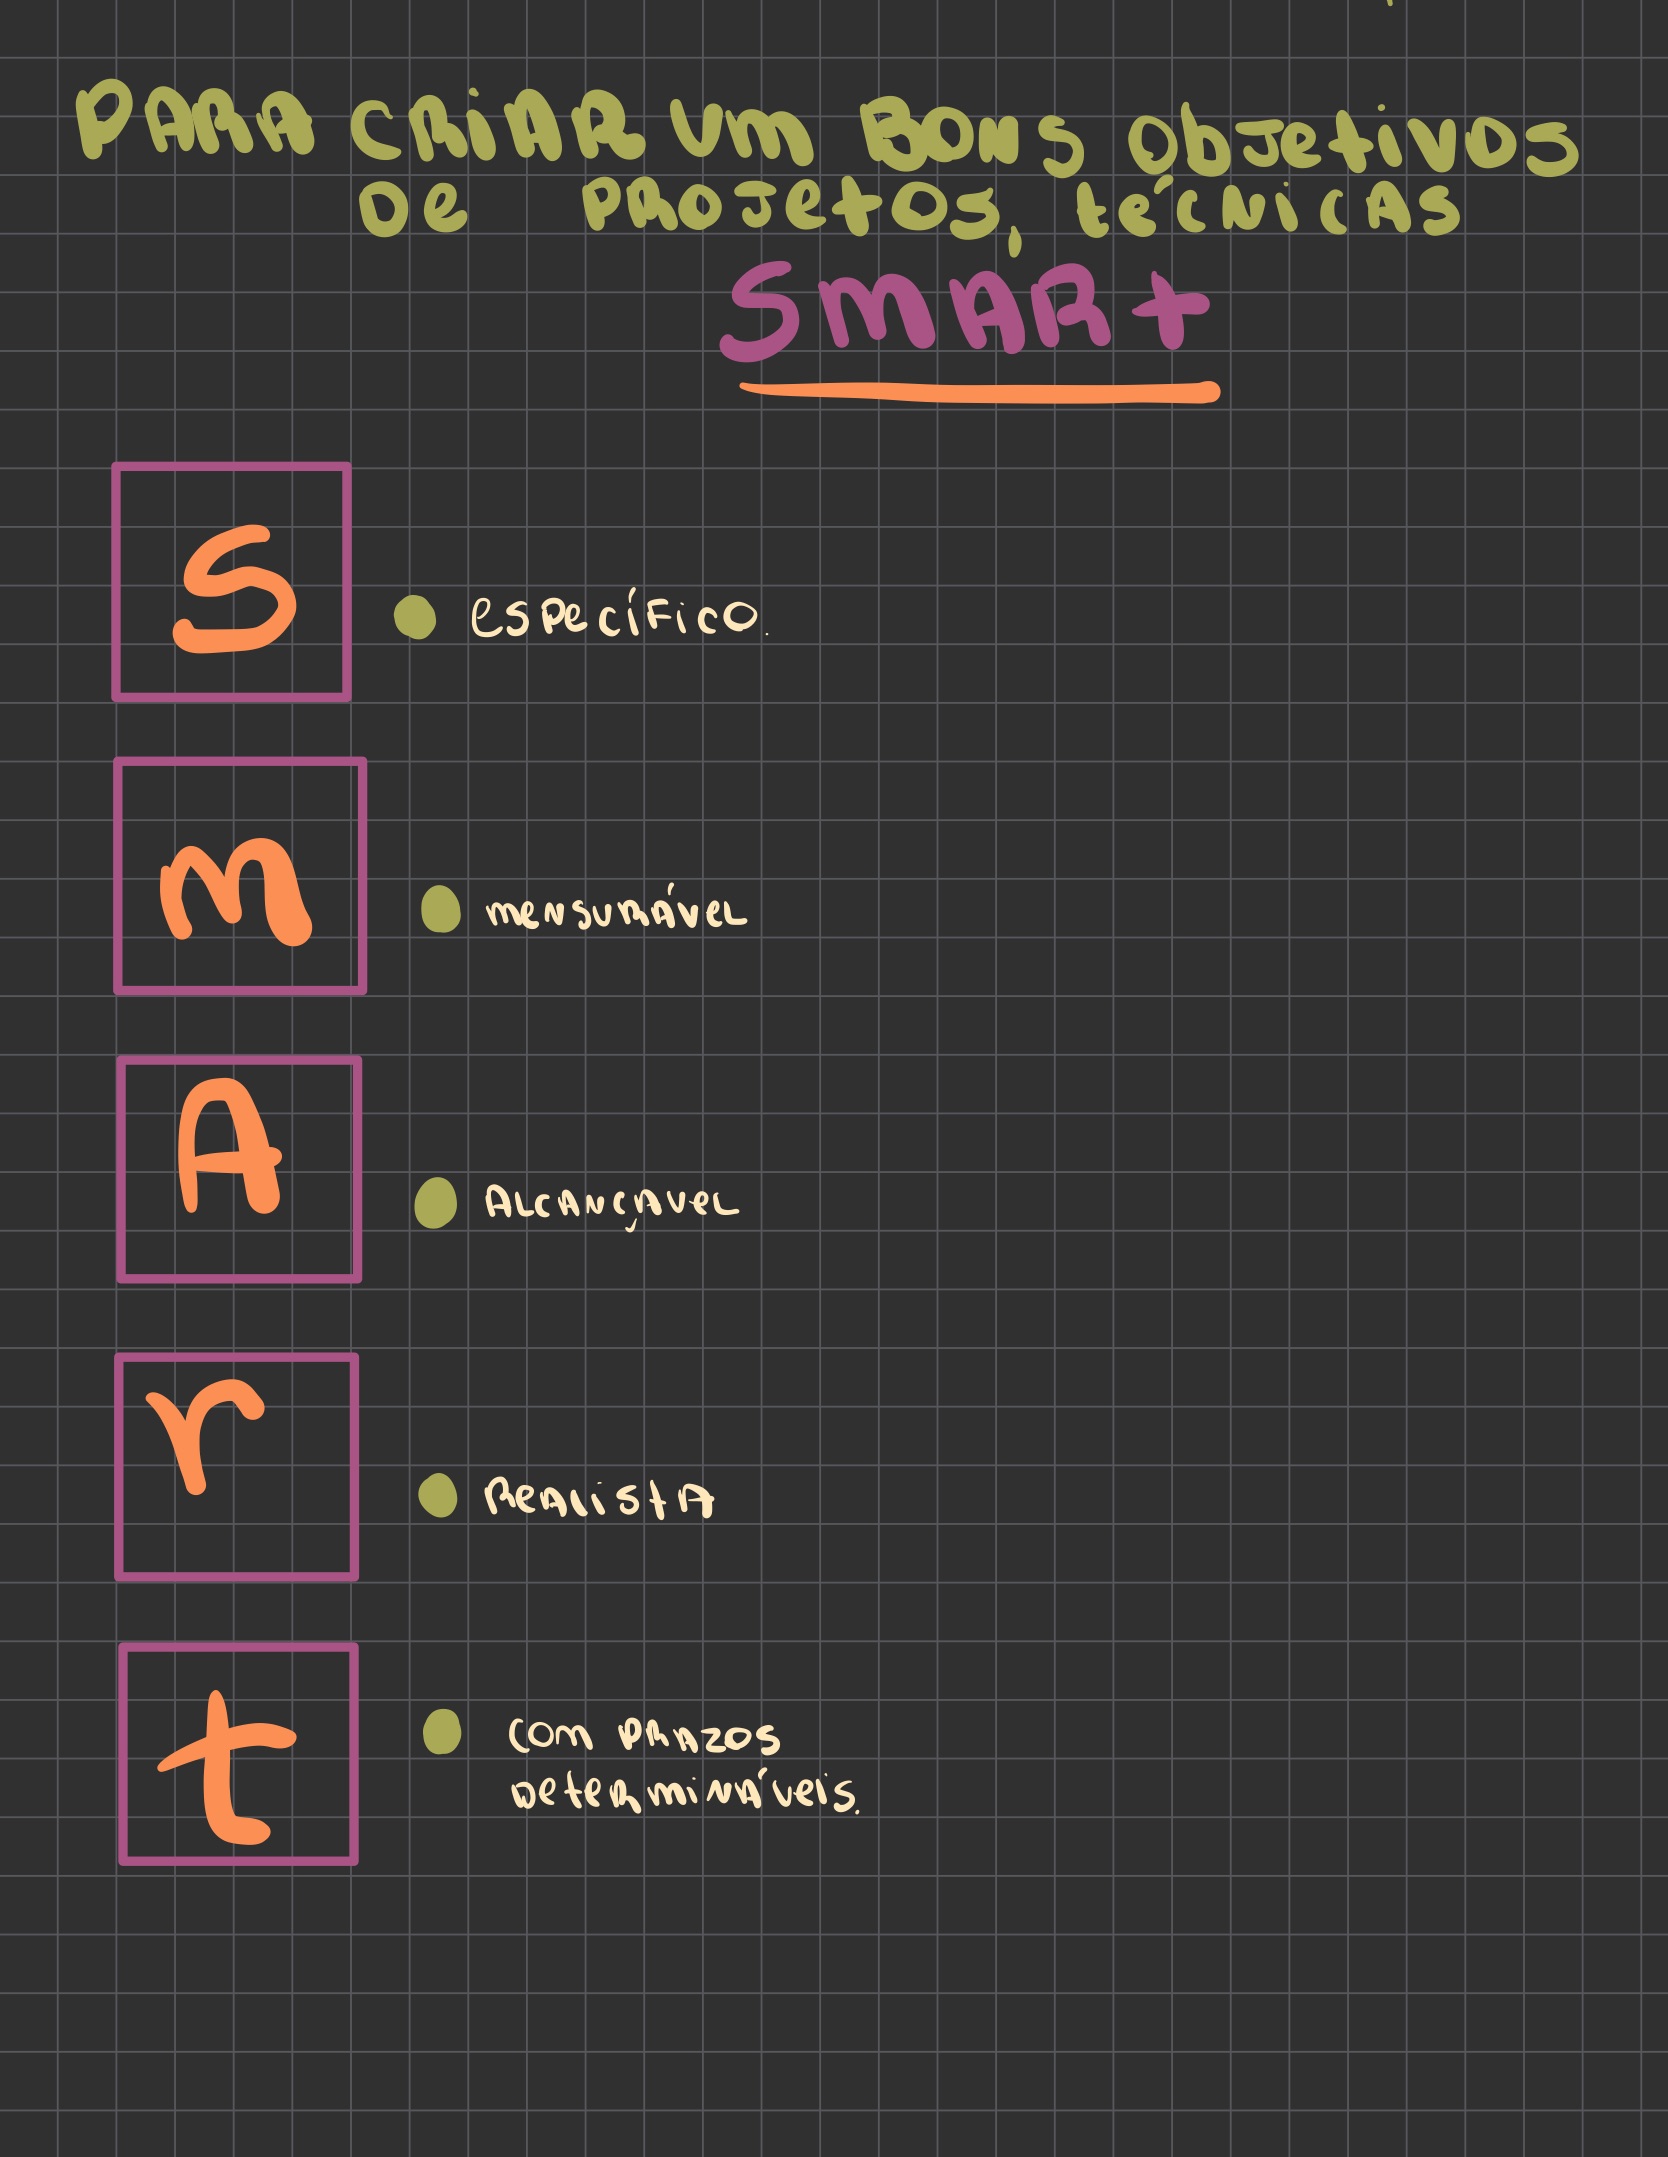 PARA CRIAR UM BONS ObJetivos
De PROJetos, técNicAs
SMARt
S
específico.
m
mensurável
A
Alcançavel
r
Realista
t
com prazos
Determináveis.